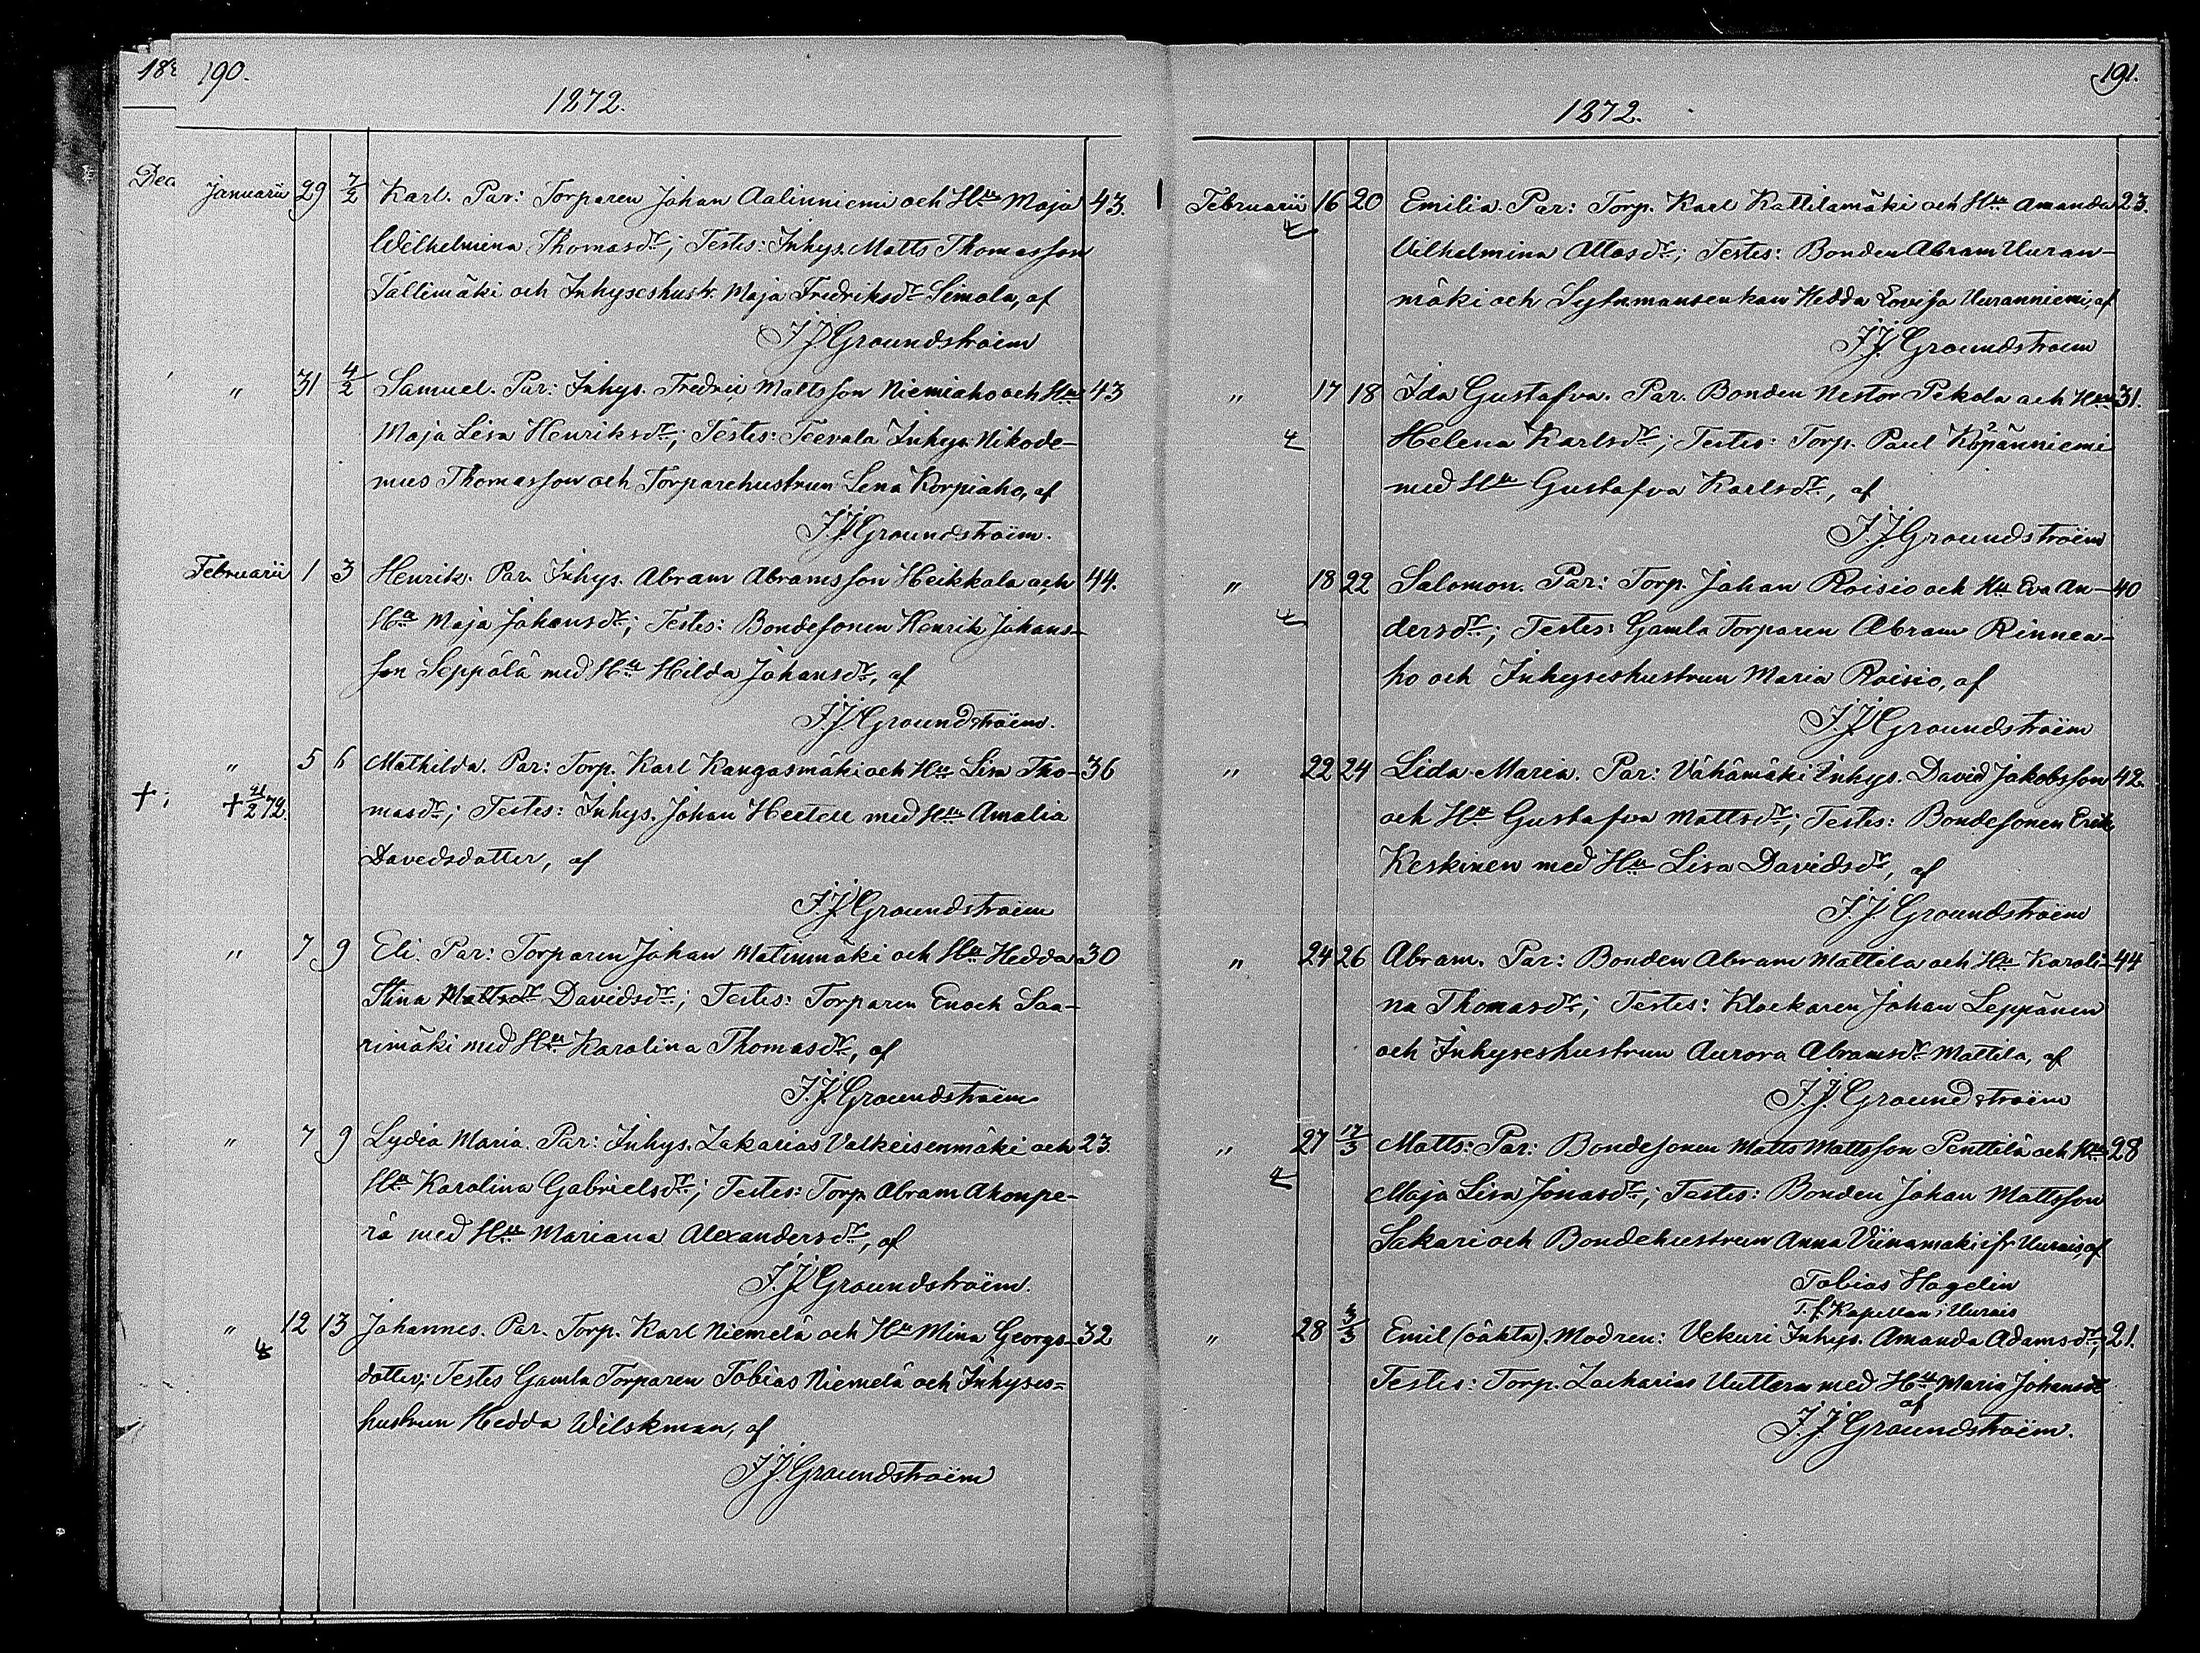 190.
1872.
Januarii 29 7/2 Karl. Par: Torparen Johan Aalinniemi och Hu Maja 43.
Wilhelmina Thomasdr; Testes: Inhys. Matts Thomasson
Tallimäki och Inhyseshustr. Maja Fredriksdr Simola, af
J.J. Groundstroëm
" 31 4/2 Samuel. Par: Inhys. Fredric Mattsson Niemiaho och Hu 43
Maja Lisa Henriksdr; Testes: Teerala Inhys. Nikode-
mus Thomasson och Torparehustrun Lena Korpiaho, af
J.J. Groundstroëm.
Februarii 1 3 Henrik. Par. Inhys. Abram Abramsson Heikkala och 44.
Hu Maja Johansdr; Testes: Bondesonen Henrik Johans-
son Seppälä med Hu Hilda Johansdr, af
J.J. Groundstroëm.
" 5 6 Mathilda. Par: Torp. Karl Kangasmäki och Hu Lisa Tho- 36
masdr; Testes: Inhys. Johan Hertell med Hu Amalia
Davidsdotter, af
J.J. Groundstroëm
" 7 9 Eli. Par: Torparen Johan Matinmäki och Hu Hedda 30
Stina Mattsdr Davidsdr; Testes: Torparen Enoch Saa-
rimäki med Hu Karolina Thomasdr, af
J.J. Groundstroëm
" 7 9 Lydia Maria. Par: Inhys. Zakarias Valkeisenmäki och 23.
Hu Karolina Gabrielsdr; Testes: Torp. Abram Ahonpe-
rä med Hu Mariana Alexandersdr, af
J.J. Groundstroëm.
" 12 13 Johannes. Par. Torp. Karl Niemelä och Hu Mina Georgs- 32
dotter; Testes Gamla Torparen Tobias Niemelä och Inhyses=
hustrun Hedda Wilskman, af
J.J. Groundstroëm
191.
1872.
Februarii 16 20 Emilia. Par: Torp. Karl Kattilamäki och Hu Amanda 23.
Vilhelmina Attosdr; Testes: Bonden Abram Uuran-
mäki och Sytnmansenkan Hedda Lovisa Uuranniemi, af
J.J. Groundstroëm
" 17 18 Ida Gustafva. Par. Bonden Nestor Pekola och Hu 31.
Helena Karlsdr; Testes: Torp. Paul Kopänniemi
med Hu Gustafva Karlsdr, af
J.J. Groundstroëm
" 18 22 Salomon. Par: Torp. Johan Roisio och Hu Eva An- 40
dersdr; Testes: Gamla Torparen Abram Rinnea-
ho och Inhyseshustrun Maria Roisio, af
J.J. Groundstroëm
" 22 24 Lida Maria. Par: Vähämäki Inhys. David Jakobsson 42.
och Hu Gustafva Mattsdr; Testes: Bondesonen Erik
Keskinen med Hu Lisa Davidsdr, af
J.J. Groundstroëm
" 24 26 Abram. Par: Bonden Abram Mattila och Hu Karoli- 44
na Thomasdr; Testes: Klockaren Johan Leppänen
och Inhyseshustrun Aurora Abramsdr Mattila, af
J.J. Groundstroëm
" 27 17/3 Matts: Par: Bondesonen Matts Mattsson Penttilä och Hu 28
Maja Lisa Jonasdr; Testes: Bonden Johan Mattsson
Sakari och Bondehustrun Anna Viinamäki ifr Uurais, af
Tobias Hagelin
T.f. Kapellan i Uurais
" 28 3/3 Emil (oäkta). Modren: Vekuri Inhys. Amanda Adamsdr; 21.
Testes: Torp. Zacharias Uuttera med Hu Maria Johansdr
af
J.J. Groundstroëm.